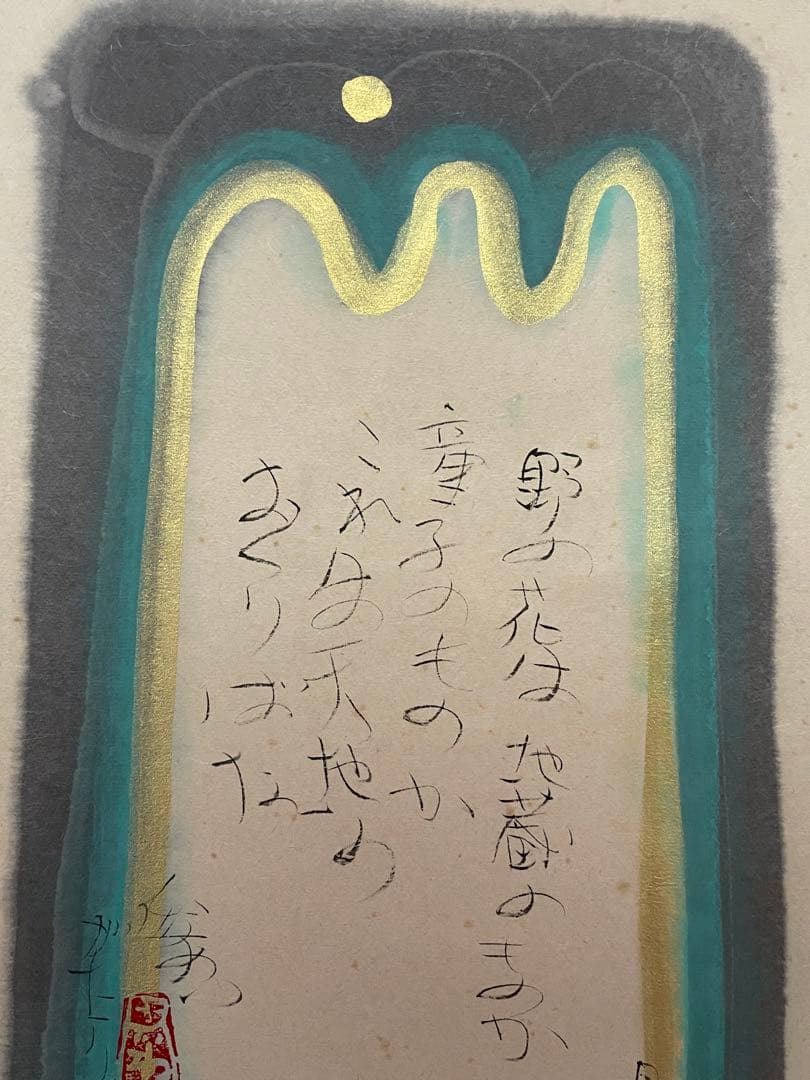 野の花は 地蔵のものか
童子のものか
これは天地の
おくりばな